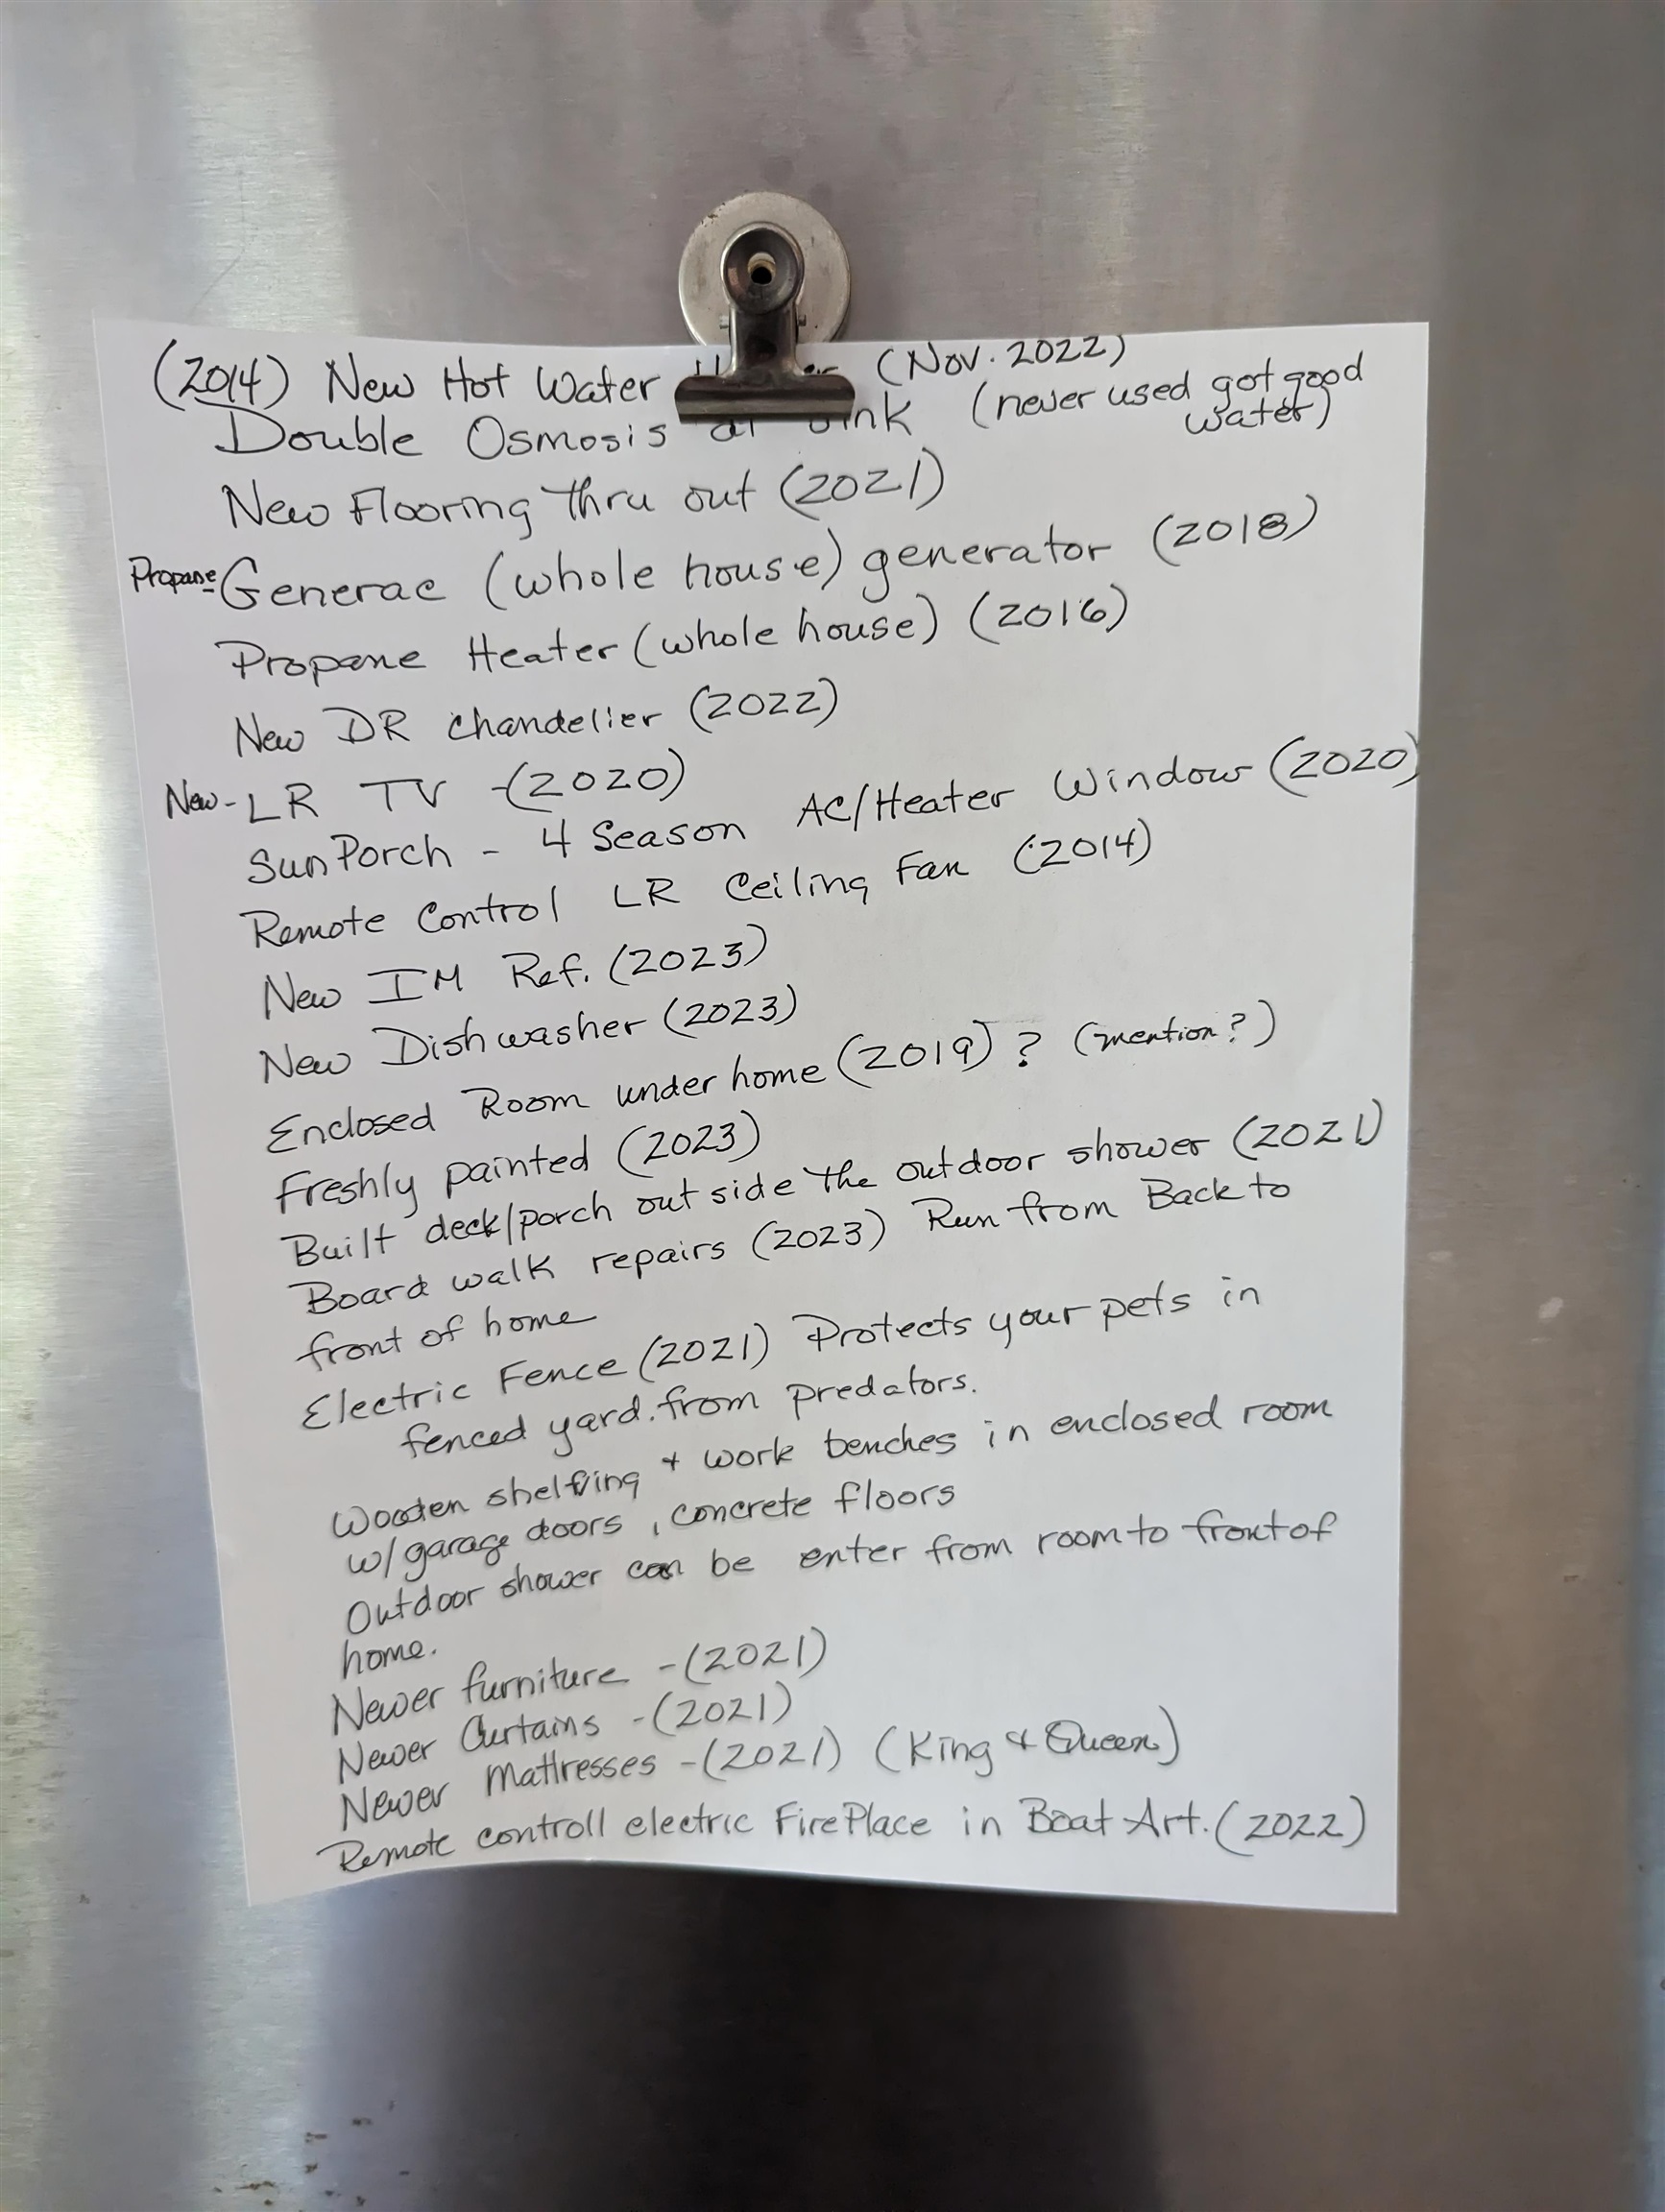 (2014) New Hot Water (Nov. 2022)
Double Osmosis at sink (never used got good
water)
New Flooring thru out (2021)
Propane - Generac (whole house) generator (2018)
Propane Heater (whole house) (2016)
New DR chandelier (2022)
New - LR TV - (2020)
Sun Porch - 4 Season AC/Heater Window (2020)
Remote Control LR Ceiling Fan (2014)
New IM Ref. (2023)
New Dishwasher (2023)
Enclosed Room under home (2019) ? (mention?)
Freshly painted (2023)
Built deck/porch out side the outdoor shower (2021)
Board walk repairs (2023) Run from Back to
front of home
Electric Fence (2021) Protects your pets in
fenced yard. from predators.
Wooden shelfing + work benches in enclosed room
w/ garage doors, concrete floors
Outdoor shower can be enter from room to front of
home.
Newer furniture - (2021)
Newer Curtains - (2021)
Newer Mattresses - (2021) (King & Queen)
Remote controll electric FirePlace in Boat Art. (2022)